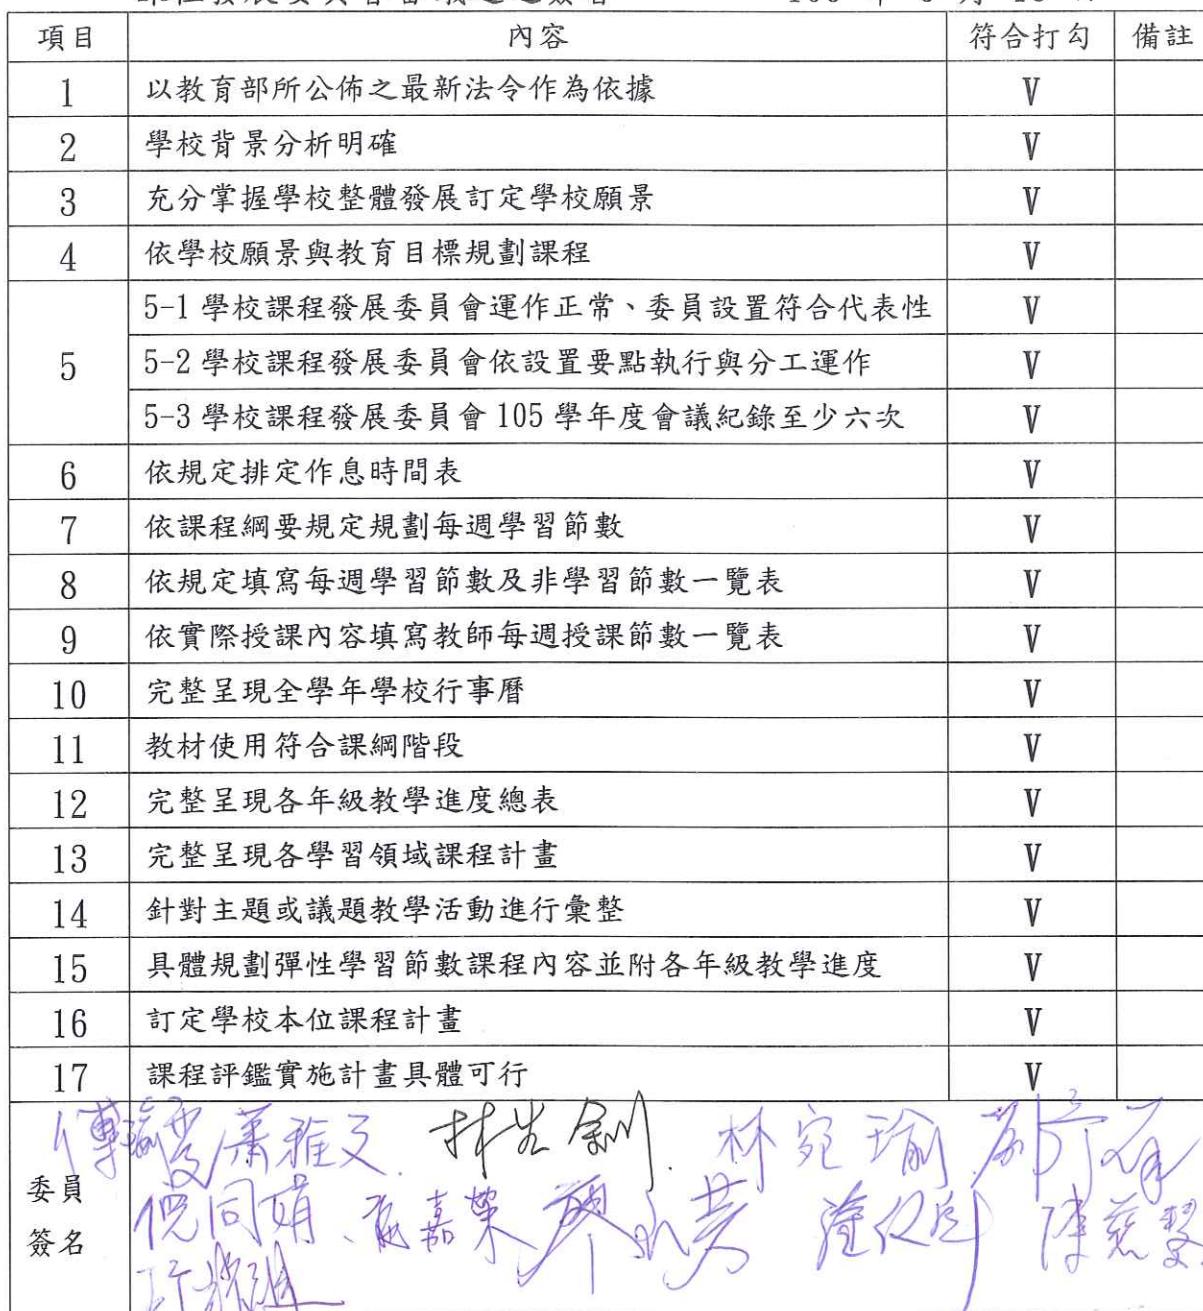 項目 內容 符合打勾 備註
1 以教育部所公佈之最新法令作為依據 V
2 學校背景分析明確 V
3 充分掌握學校整體發展訂定學校願景 V
4 依學校願景與教育目標規劃課程 V
5 5-1 學校課程發展委員會運作正常、委員設置符合代表性 V
5-2 學校課程發展委員會依設置要點執行與分工運作 V
5-3 學校課程發展委員會 105 學年度會議紀錄至少六次 V
6 依規定排定作息時間表 V
7 依課程綱要規定規劃每週學習節數 V
8 依規定填寫每週學習節數及非學習節數一覽表 V
9 依實際授課內容填寫教師每週授課節數一覽表 V
10 完整呈現全學年學校行事曆 V
11 教材使用符合課綱階段 V
12 完整呈現各年級教學進度總表 V
13 完整呈現各學習領域課程計畫 V
14 針對主題或議題教學活動進行彙整 V
15 具體規劃彈性學習節數課程內容並附各年級教學進度 V
16 訂定學校本位課程計畫 V
17 課程評鑑實施計畫具體可行 V
委員
簽名
蕭雅文 林宛瑜
倪同娟 陳慈慧